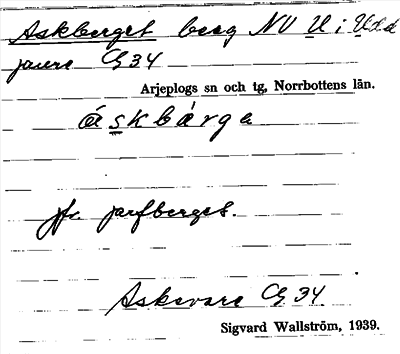 Askberget berg NV U i Udd
jaure G 34
Arjeplogs sn och tg, Norrbottens län.
áskbærge
jfr jarfberget.
Askevare G 34
Sigvard Wallström, 1939.